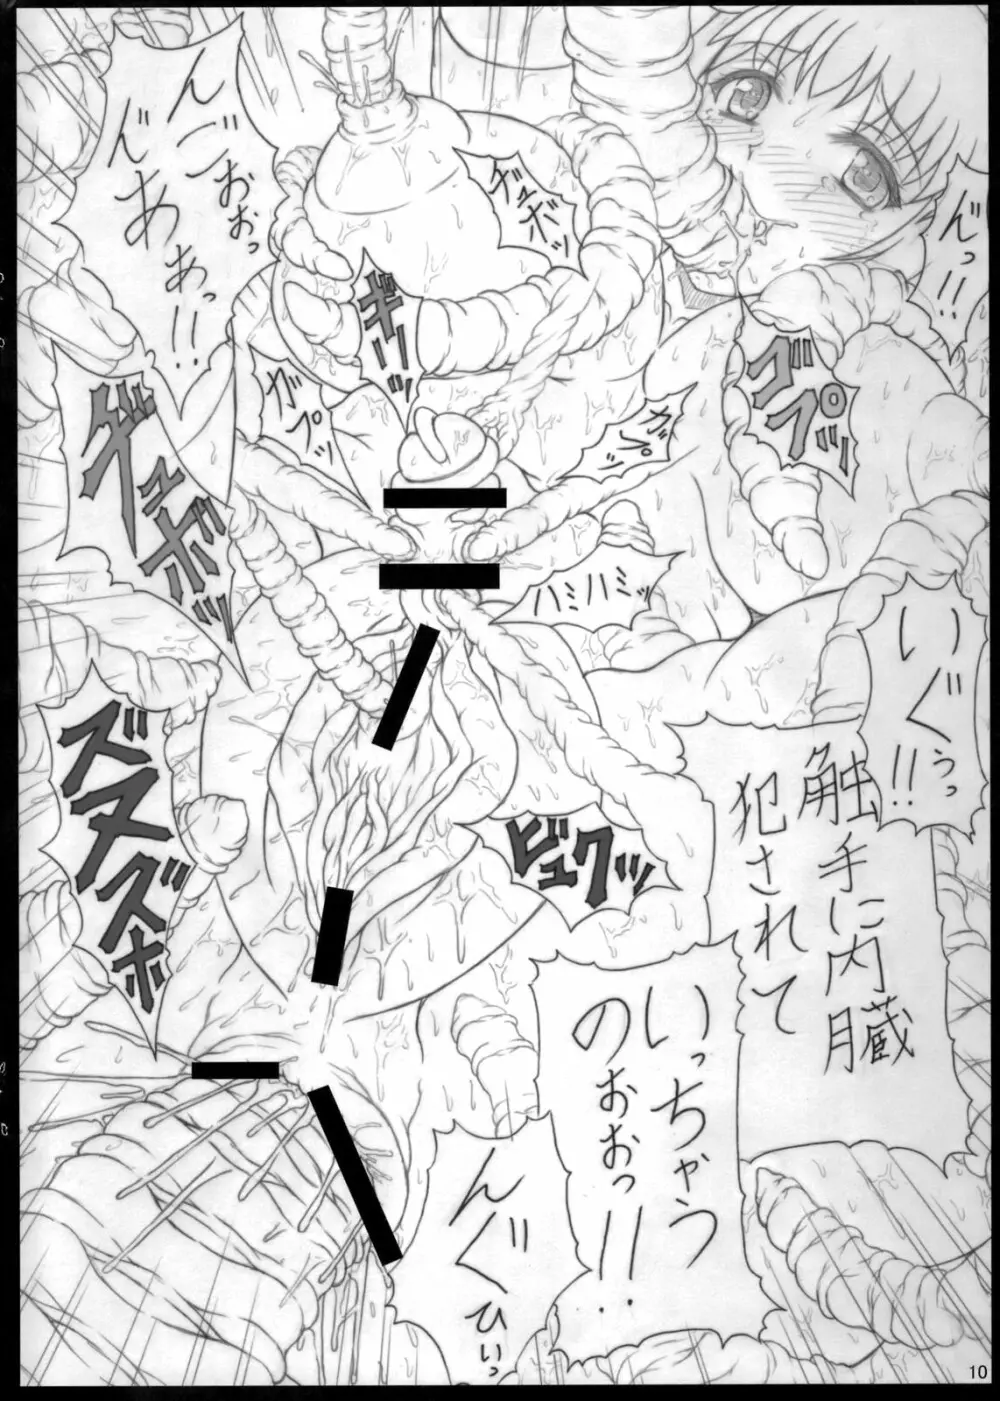 んっ!!
ギュボッ
んごおおぉっ
んあぁあっ!!
ギギーッ
ゴプッ
ガプッ
ガプッ
グチュボッ
ハミハミッ
いぐぅっ!!
触手に内臓
犯されて
ズヌズボ
ビュクッ
いっちゃう
のおおっ!!
んぐ
ひぃっ
10